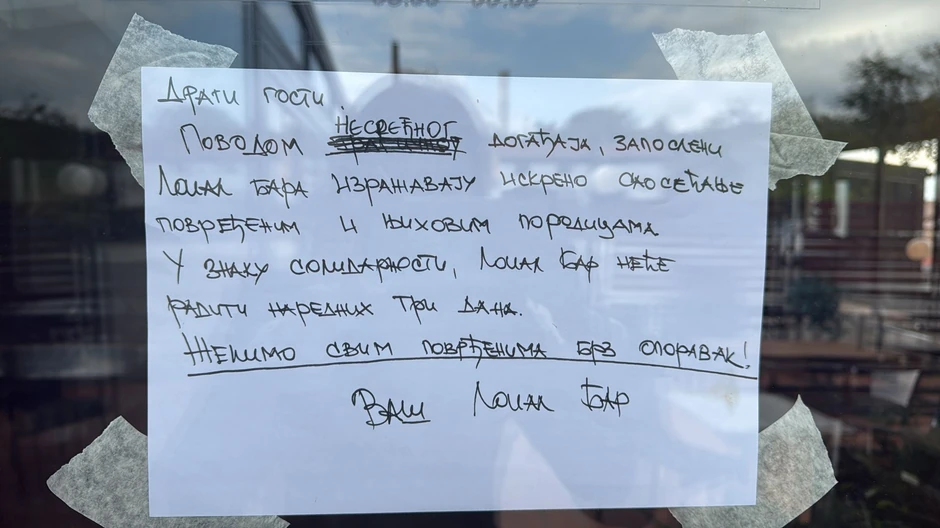 Драги гости,
Поводом несрећног догађаја, запослени
Лоцал бара изражавају искрено саосећање
повређеним и њиховим породицама
У знаку солидарности, Лоцал бар неће
радити наредних три дана.
Желимо свим повређенима брз опоравак!
Ваш Лоцал бар